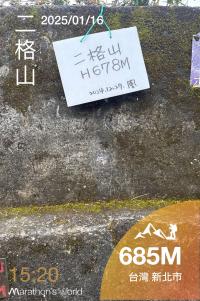 二格山
2025/01/16
二格山
H678M
2024.12.29. 風
685M
台灣 新北市
15:20
Marathon's World